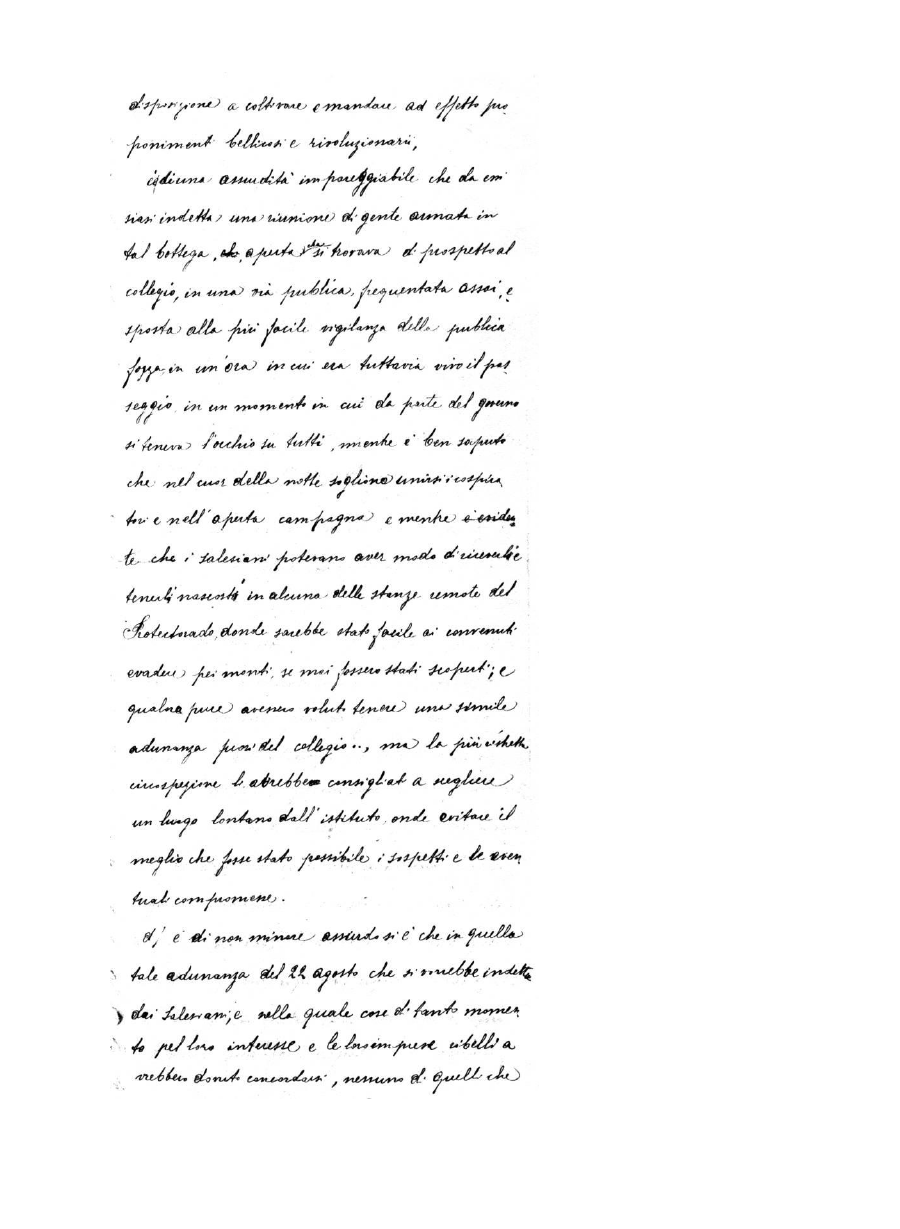 disposizione a coltivare e mandare ad effetto pro
poniment bellicosi e rivoluzionarii,
è di una assurdità impareggiabile che da essi
siasi indetta una riunione di gente armata in
tal bottega, aperta che si trovava di prospetto al
collegio, in una via publica, frequentata assai, e
sposta alla più facile vigilanza della publica
forza, in un'ora in cui era tuttavia vivo il pas
seggio, in un momento in cui da parte del governo
si teneva l'occhio su tutti, mentre è ben saputo
che nel cuor della notte sogliono unirsi i cospira
tori e nell'aperta campagna e mentre è eviden
te che i salesiani potevano aver modo di riceverli e
tenerli nascosti in alcuna delle stanze remote del
Protectorado, donde sarebbe stato facile ai convenuti
evadere pei monti, se mai fossero stati scoperti; e
qualora pure avessero voluto tenere una simile
adunanza fuori del collegio.., ma la più
circospezione li avrebbe consigliati a scegliere
un luogo lontano dall'istituto, onde evitare il
meglio che fosse stato possibile i sospetti e le even
tuali compromesse.
d) e di non minore assurdo si è che in quella
tale adunanza del 22 agosto che si vorrebbe indetta
dai Salesiani, e nella quale cose di tanto momen
to pel loro interesse e le loro imprese ribelli a
vrebbero dovuto concordarsi, nessuno di quelli che